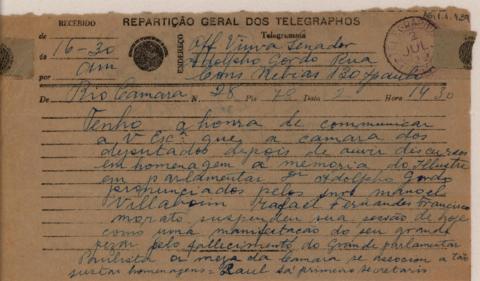 RECEBIDO
REPARTIÇÃO GERAL DOS TELEGRAPHOS
de
16-30
as
Am
por
ENDEREÇO
Telegramma
Off Viuva Senador
Adolpho Gordo Rua
Cons Nebias 130 spaulo
2
JUL
De Rio Camara N. 28 Pls 78 Data 2 Hora 14 30
Tenho a honra de communicar
a V Exª que a camara dos
deputados depois de ouvir discursos
em homenagem a memoria do Illustre
parlamentar Dr Adolpho Gordo
pronunciados pelos snrs manoel
Villaboim Rafael Fernandes Francisco
morato suspendeu sua sessão de hoje
como uma manifestação do seu grande
pezar pelo fallecimento do Grande parlamentar
Paulista a meza da Camara se associou a tão
justas homenagens = Raul Sá primeiro secretario